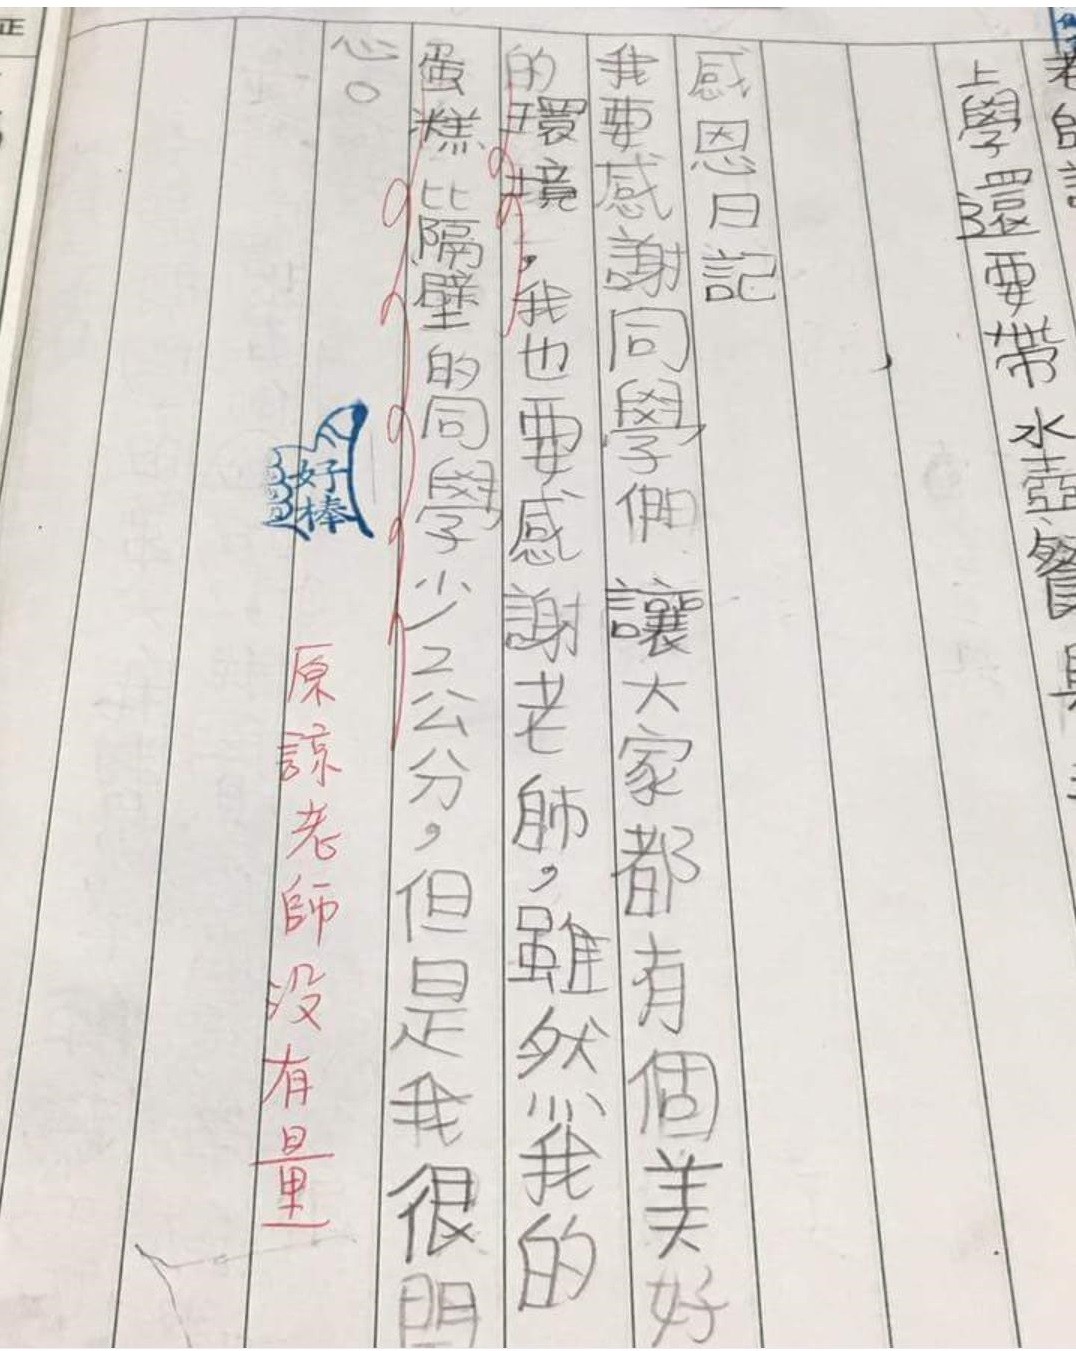 老師
上學還要帶水壺餐具
感恩日記
我要感謝同學們讓大家都有個美好
的環境，我也要感謝老師，雖然我的
蛋糕比隔壁的同學少2公分，但是我很開
心。
好棒
原諒老師沒有量
正